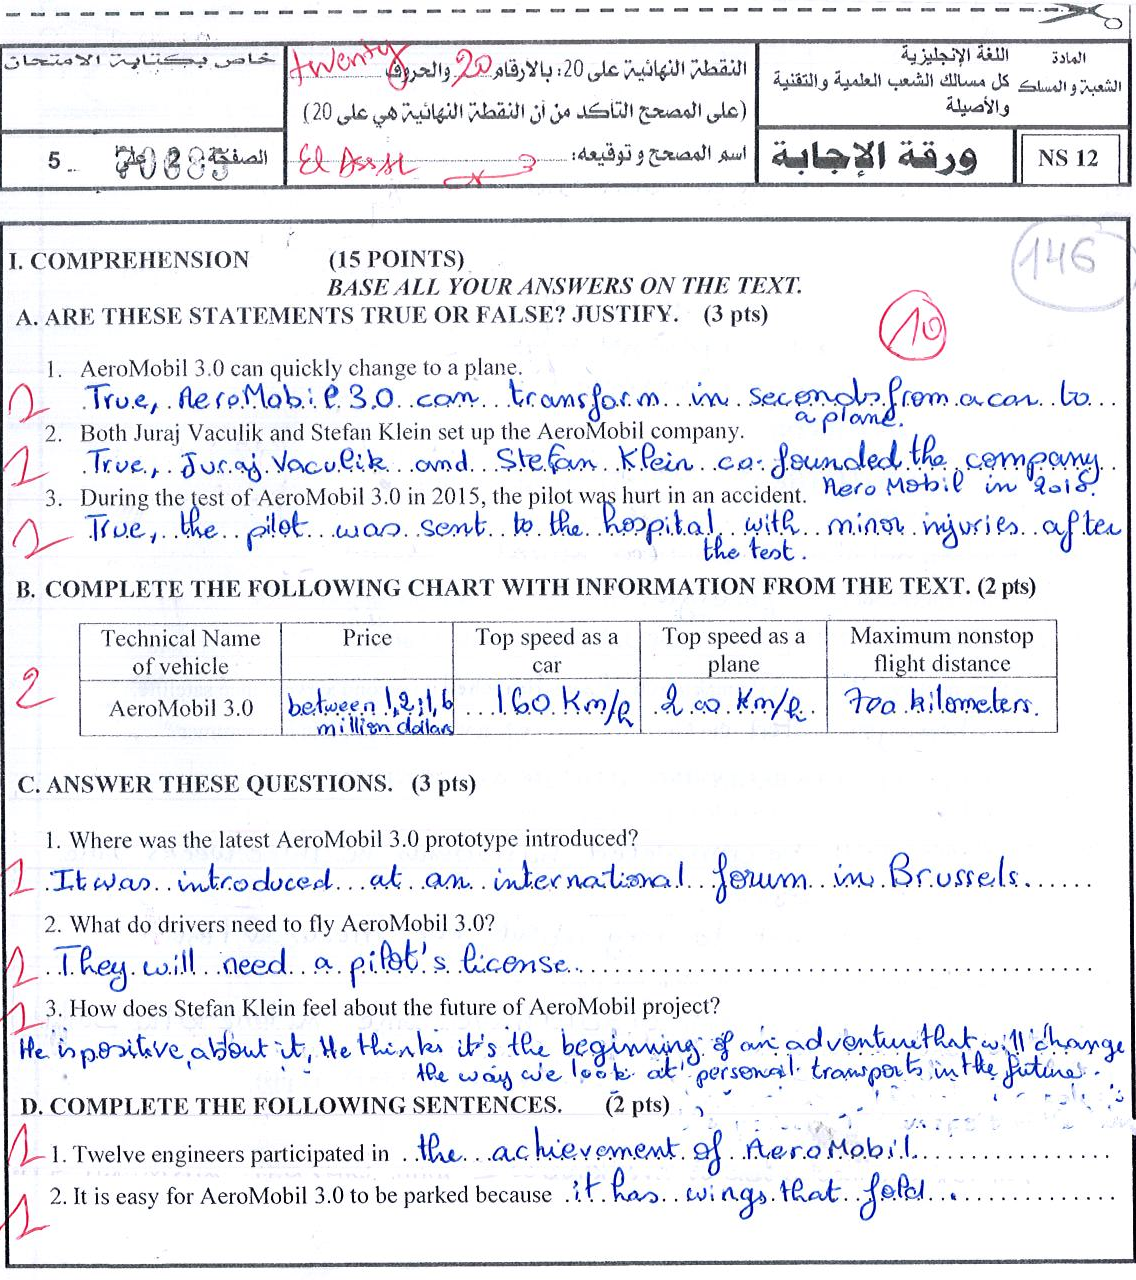 خاص بكتابة الامتحان
النقطة النهائية على 20: بالأرقام 20 والحروف twenty
(على المصحح التأكد من أن النقطة النهائية هي على 20)
اسم المصحح وتوقيعه:
المادة
اللغة الإنجليزية
الشعبة والمسلك
كل مسالك الشعب العلمية والتقنية والأصيلة
الصفحة: 2 على 5
ورقة الإجابة
NS 12
146
I. COMPREHENSION (15 POINTS)
BASE ALL YOUR ANSWERS ON THE TEXT.
A. ARE THESE STATEMENTS TRUE OR FALSE? JUSTIFY. (3 pts)
10
1. AeroMobil 3.0 can quickly change to a plane.
1 True, AeroMobil 3.0 can transform in seconds from a car to
a plane.
2. Both Juraj Vaculik and Stefan Klein set up the AeroMobil company.
1 True, Juraj Vaculik and Stefan Klein co-founded the company
Aero Mobil in 2010.
3. During the test of AeroMobil 3.0 in 2015, the pilot was hurt in an accident.
1 True, the pilot was sent to the hospital with minor injuries after
the test.
B. COMPLETE THE FOLLOWING CHART WITH INFORMATION FROM THE TEXT. (2 pts)
Technical Name of vehicle Price Top speed as a car Top speed as a plane Maximum nonstop flight distance
2 AeroMobil 3.0 between 1,2 ; 1,6 million dollars 160 Km/h 200 Km/h 700 kilometers.
C. ANSWER THESE QUESTIONS. (3 pts)
1. Where was the latest AeroMobil 3.0 prototype introduced?
1 It was introduced at an international forum in Brussels
2. What do drivers need to fly AeroMobil 3.0?
1 They will need a pilot's license
1 3. How does Stefan Klein feel about the future of AeroMobil project?
He is positive about it, He thinks it's the beginning of an adventure that will change
the way we look at personal transports in the future.
D. COMPLETE THE FOLLOWING SENTENCES. (2 pts)
1 1. Twelve engineers participated in the achievement of AeroMobil
1 2. It is easy for AeroMobil 3.0 to be parked because it has wings that fold.